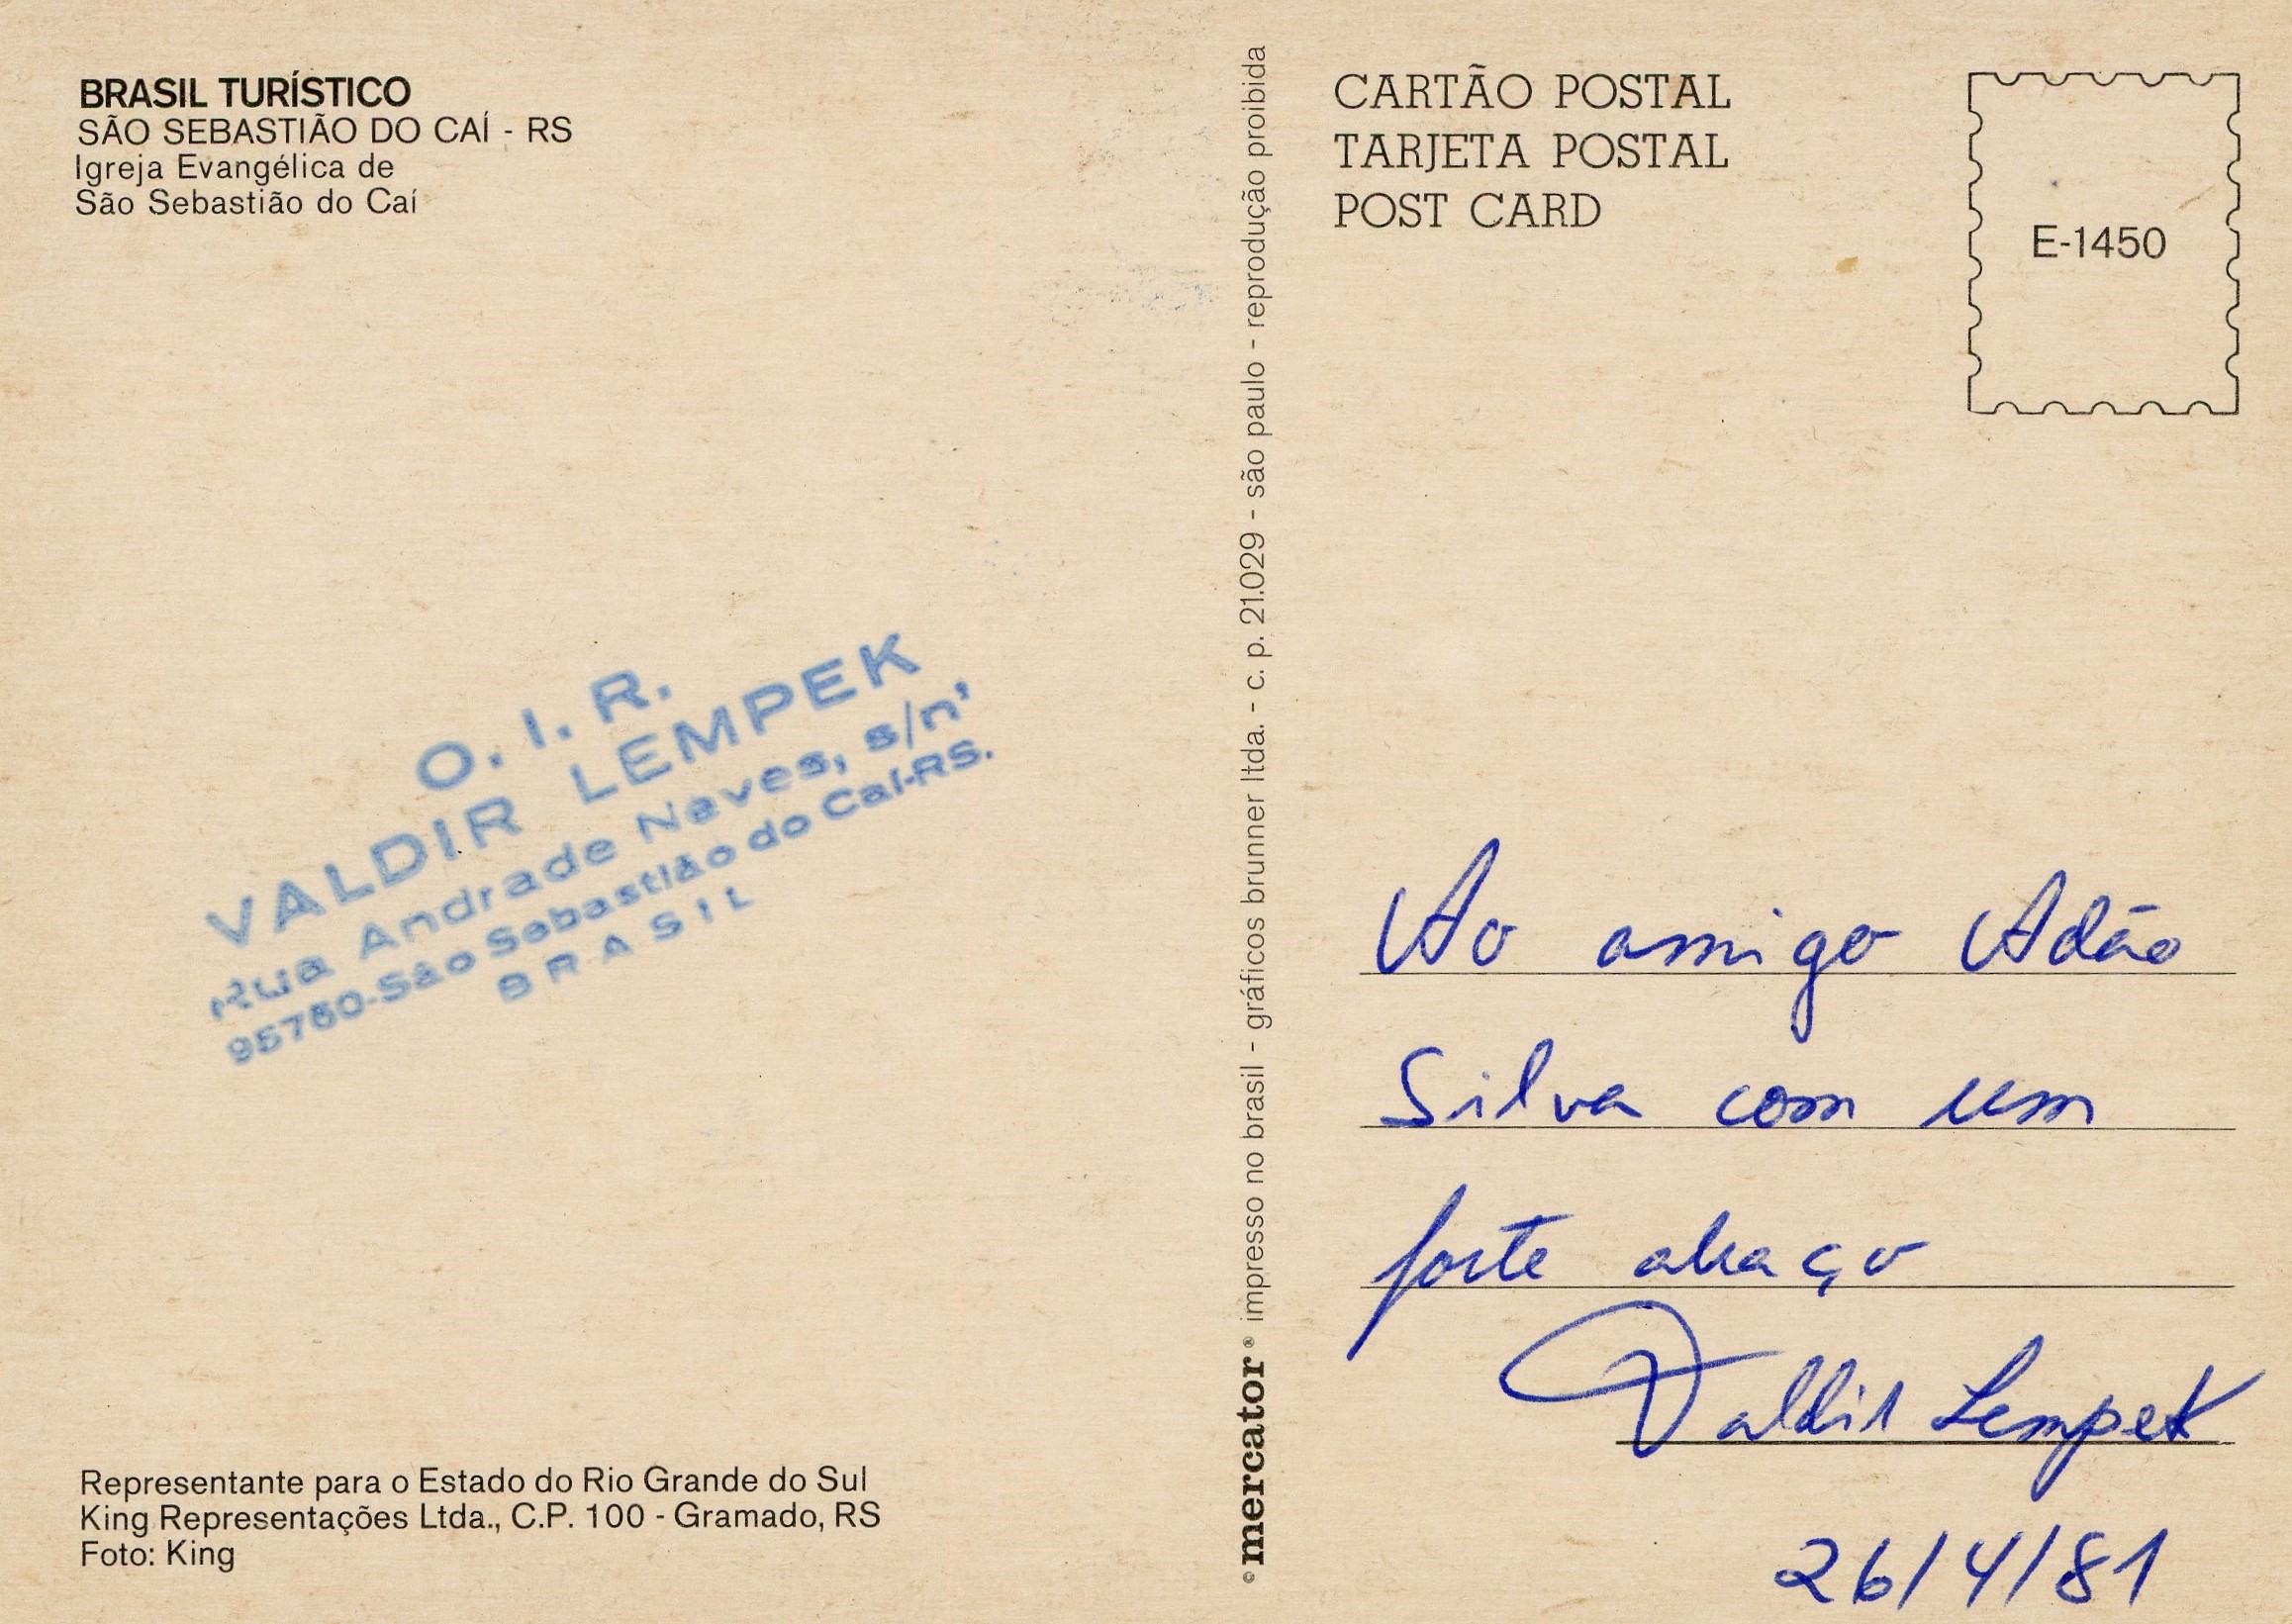 BRASIL TURÍSTICO
SÃO SEBASTIÃO DO CAÍ - RS
Igreja Evangélica de
São Sebastião do Caí
O. I. R.
VALDIR LEMPEK
Rua Andrade Neves, s/n'
95760-São Sebastião do Caí-RS.
BRASIL
Representante para o Estado do Rio Grande do Sul
King Representações Ltda., C.P. 100 - Gramado, RS
Foto: King
©mercator® impresso no brasil - gráficos brunner ltda. - c. p. 21.029 - são paulo - reprodução proibida
CARTÃO POSTAL
TARJETA POSTAL
POST CARD
E-1450
Ao amigo Adão
Silva com um
forte abraço
Valdir Lempek
26/4/81